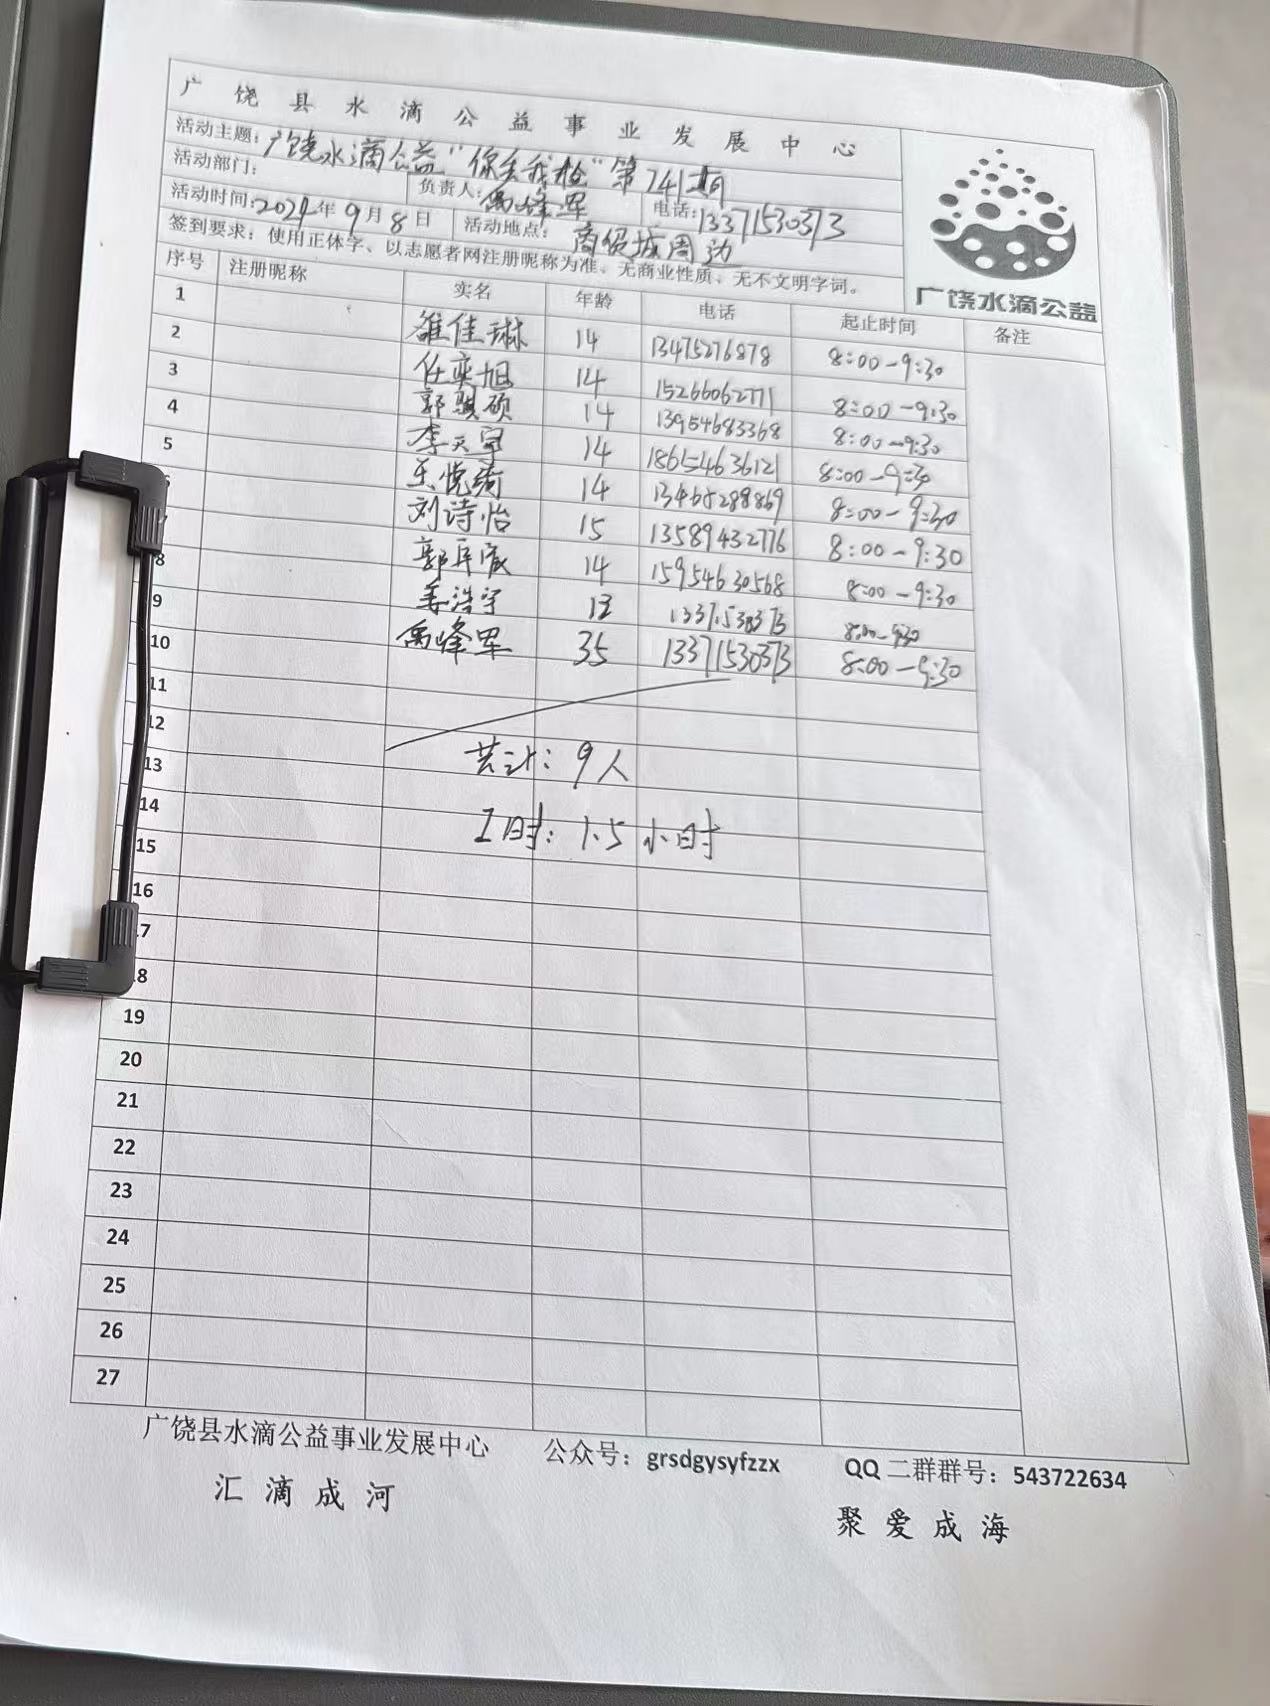 广饶县水滴公益事业发展中心
活动主题：广饶水滴公益"你丢我捡"第741期
活动部门： 负责人：禹峰军 电话：13371530373
活动时间：2024年9月8日 活动地点：商贸城周边
签到要求：使用正体字、以志愿者网注册昵称为准、无商业性质、无不文明字词。
广饶水滴公益
序号 注册昵称 实名 年龄 电话 起止时间 备注
1 雒佳琳 14 13475276878 8:00-9:30
2 任奕旭 14 15266062771 8:00-9:30
3 郭骐硕 14 13954683368 8:00-9:30
4 李天宇 14 18654636121 8:00-9:30
5 乐悦绮 14 13465288869 8:00-9:30
6 刘诗怡 15 13589432776 8:00-9:30
7 郭 14 15954630568 8:00-9:30
8 姜浩宇 12 13371530373 8:00-9:30
9 禹峰军 35 13371530373 8:00-9:30
10
11
12
13 共计：9人
14
15 工时：1.5小时
16
17
18
19
20
21
22
23
24
25
26
27
广饶县水滴公益事业发展中心 公众号：grsdgysyfzzx QQ二群群号：543722634
汇滴成河 聚爱成海